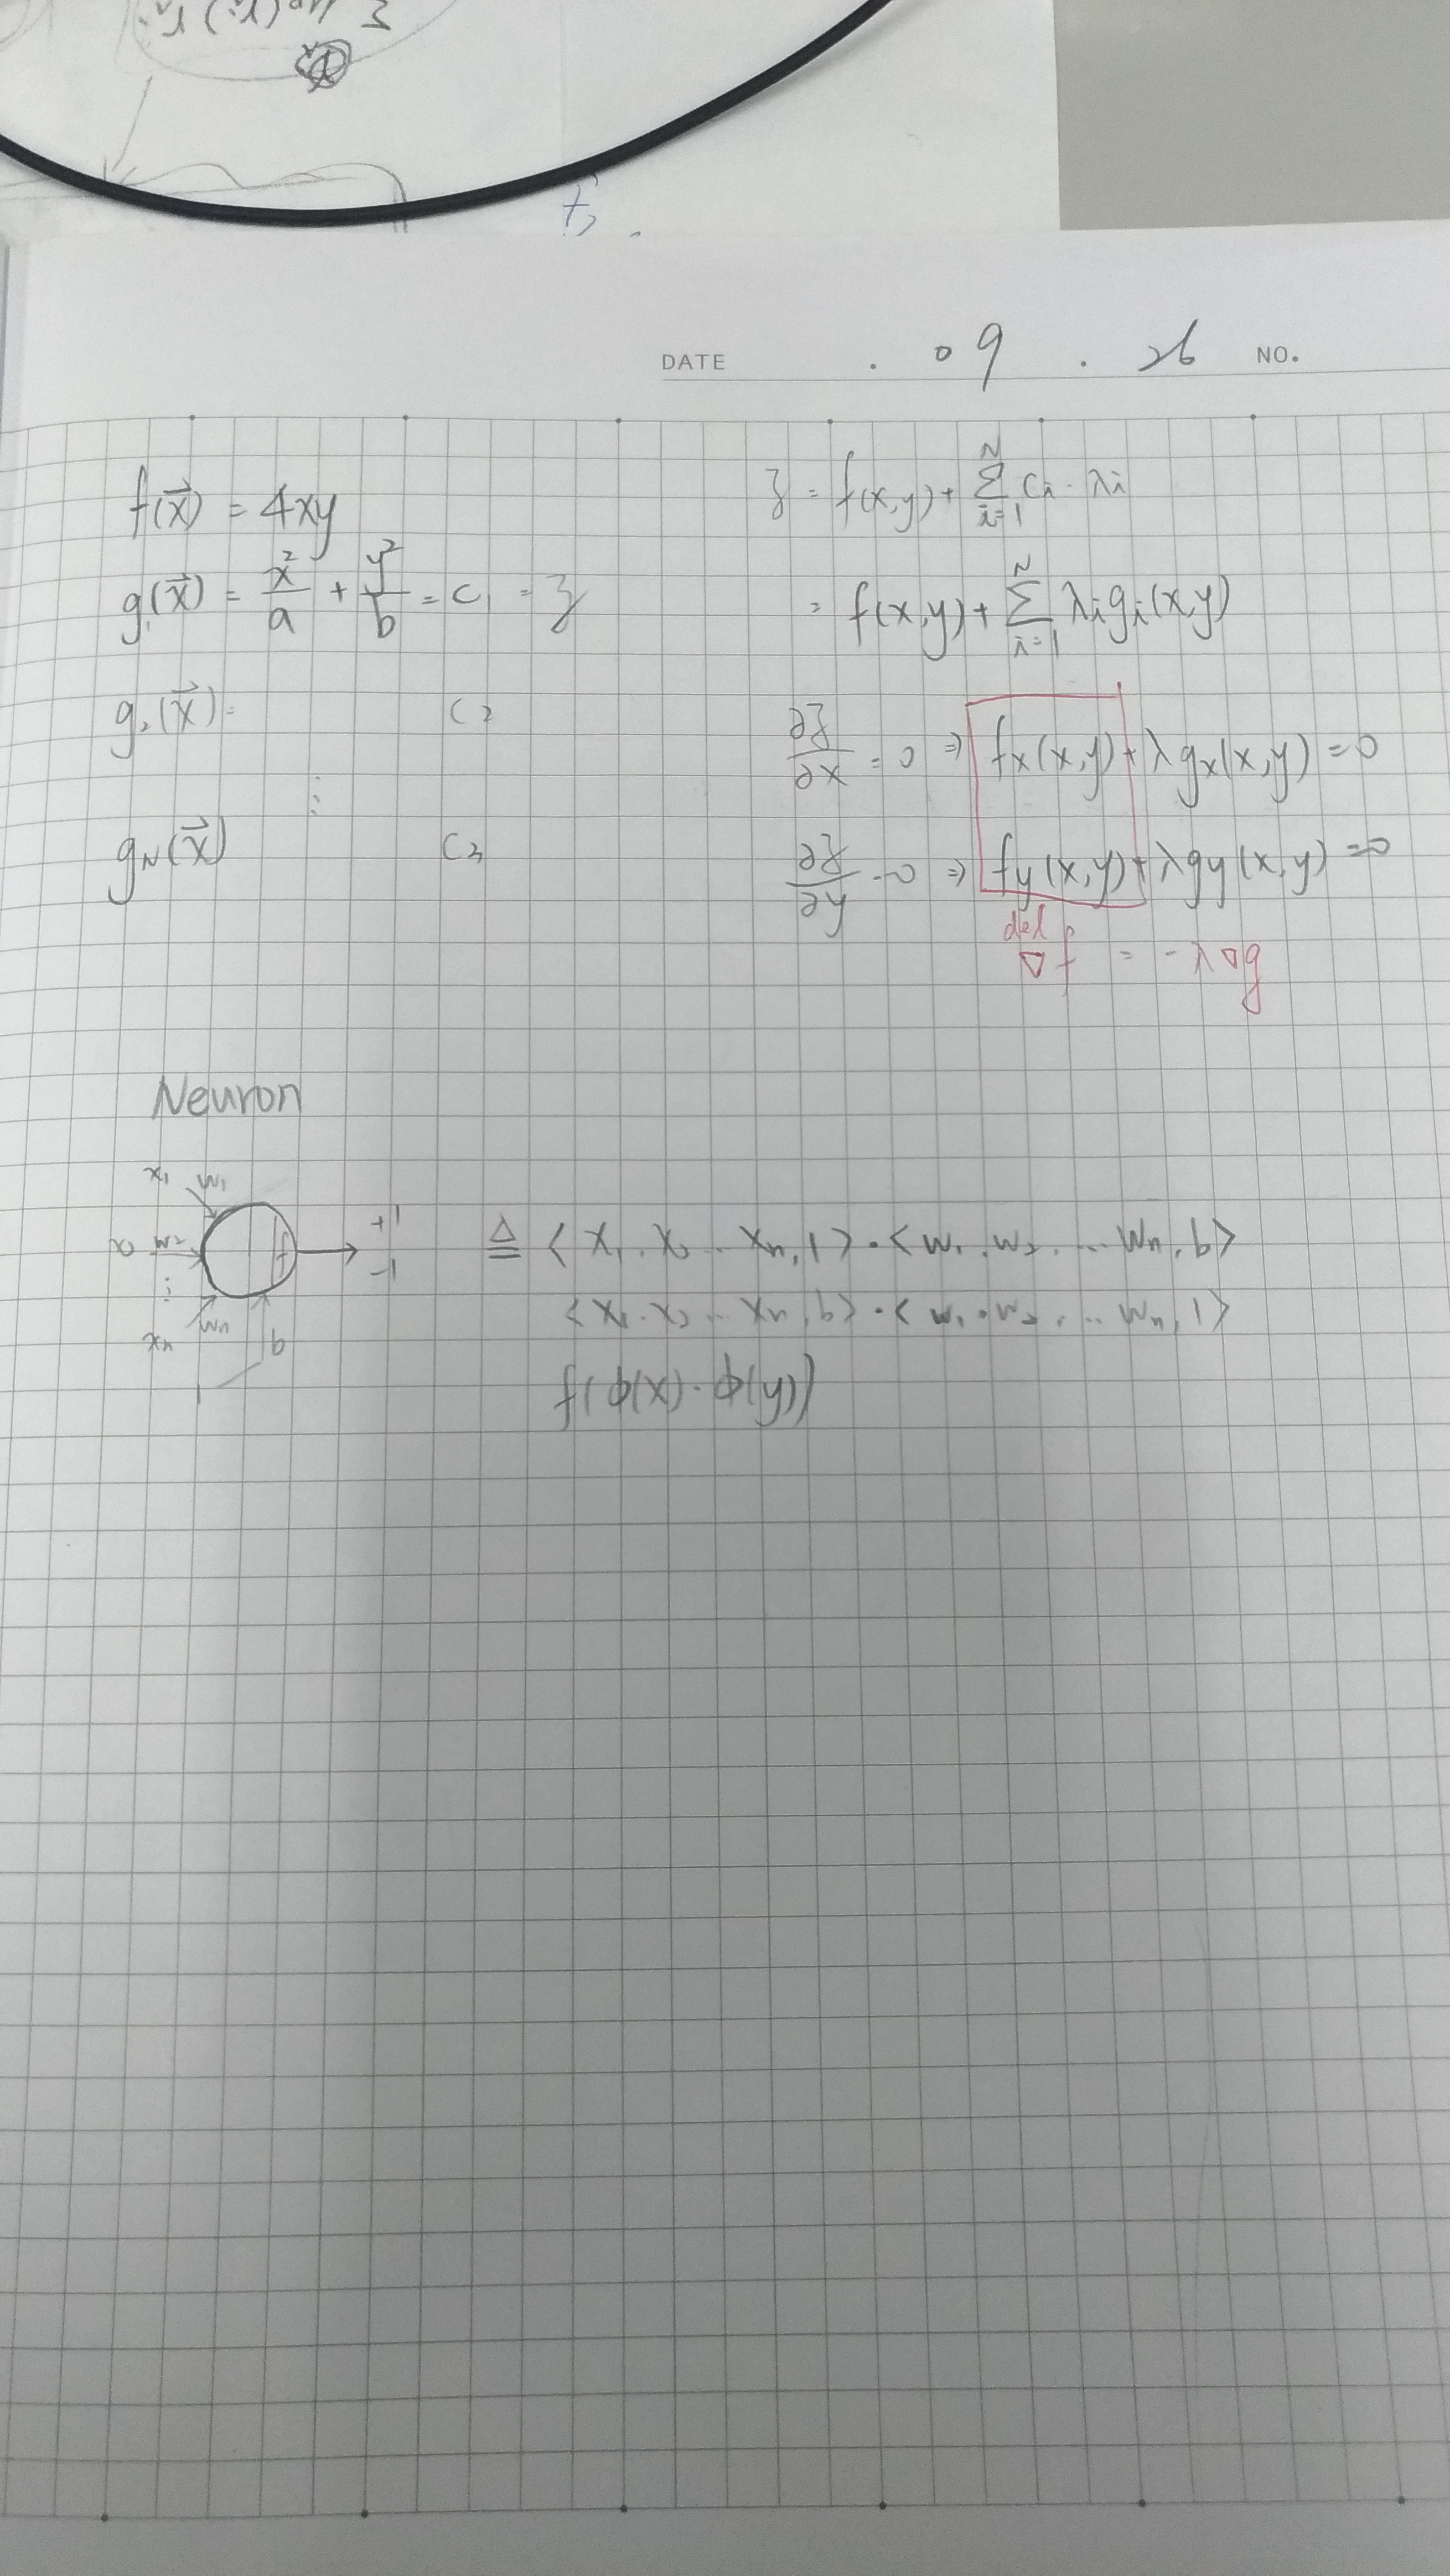 DATE . 09 . 26 NO.
f(x⃗) = 4xy
g₁(x⃗) = x²/a + y²/b = C₁ = z
g₂(x⃗) = C₂
⋮
g_N(x⃗) C₃
z = f(x,y) + Σ_{i=1}^{N} Cᵢ · λᵢ
= f(x,y) + Σ_{i=1}^{N} λᵢgᵢ(x,y)
∂z/∂x = 0 ⇒ fx(x,y) + λgx(x,y) = 0
∂z/∂y = 0 ⇒ fy(x,y) + λgy(x,y) = 0
del
∇f = -λ∇g
Neuron
x₁ w₁
w₂
⋮
xₙ wₙ b
1
f
+1
-1
≜ <x₁, x₂ ... xₙ, 1> · <w₁, w₂, ... wₙ, b>
<x₁, x₂ ... xₙ, b> · <w₁, w₂, ... wₙ, 1>
f(φ(x) · φ(y))